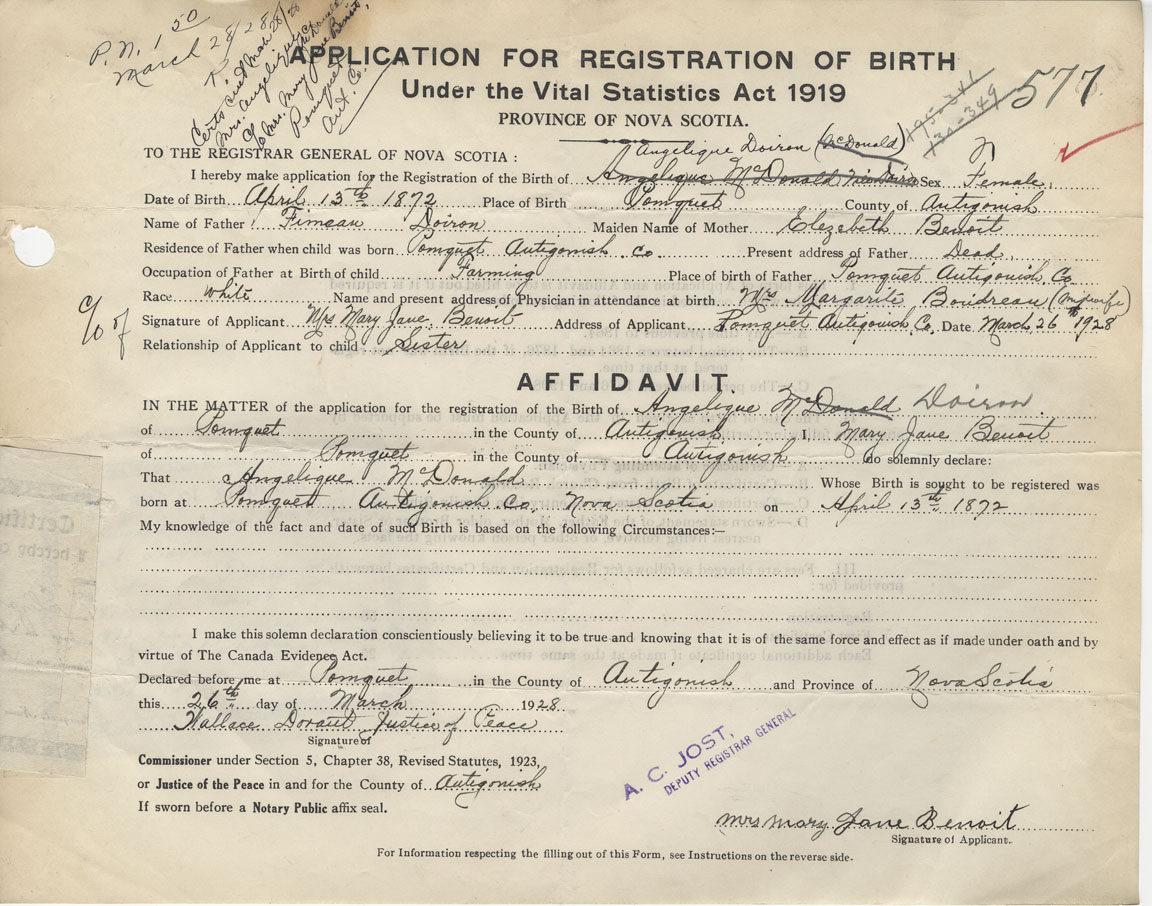 P.N. 1 50
March 28/28
Certs cued Mar 28/28
Mrs. Angelique McDonald
c/o Mrs. Mary Jane Benoit,
Pomquet
Ant. Co.
APPLICATION FOR REGISTRATION OF BIRTH
Under the Vital Statistics Act 1919
PROVINCE OF NOVA SCOTIA.
195-341
134-349
577
Angelique Doiron (McDonald)
TO THE REGISTRAR GENERAL OF NOVA SCOTIA:
I hereby make application for the Registration of the Birth of Angelique McDonald Sex Female.
Date of Birth April 13th 1872 Place of Birth Pomquet County of Antigonish
Name of Father Simean Doiron Maiden Name of Mother Elezebeth Benoit
Residence of Father when child was born Pomquet Antigonish Co Present address of Father Dead.
Occupation of Father at Birth of child Farming Place of birth of Father Pomquet Antigonish Co
Race White Name and present address of Physician in attendance at birth Mrs Margarite Boudreau (Midwife)
c/o of
Signature of Applicant Mrs Mary Jane Benoit Address of Applicant Pomquet Antigonish Co. Date March 26th 1928
Relationship of Applicant to child Sister
AFFIDAVIT.
IN THE MATTER of the application for the registration of the Birth of Angelique McDonald Doiron
of Pomquet in the County of Antigonish I, Mary Jane Benoit
of Pomquet in the County of Antigonish do solemnly declare:
That Angelique McDonald Whose Birth is sought to be registered was
born at Pomquet Antigonish Co. Nova Scotia on April 13th 1872
My knowledge of the fact and date of such Birth is based on the following Circumstances:—
I make this solemn declaration conscientiously believing it to be true and knowing that it is of the same force and effect as if made under oath and by
virtue of The Canada Evidence Act.
Declared before me at Pomquet in the County of Antigonish and Province of Nova Scotia
this 26th day of March 1928
Wallace Dorant Justice of Peace
Signature of
Commissioner under Section 5, Chapter 38, Revised Statutes, 1923,
or Justice of the Peace in and for the County of Antigonish
If sworn before a Notary Public affix seal.
A. C. JOST,
DEPUTY REGISTRAR GENERAL
Mrs Mary Jane Benoit
Signature of Applicant.
For Information respecting the filling out of this Form, see Instructions on the reverse side.